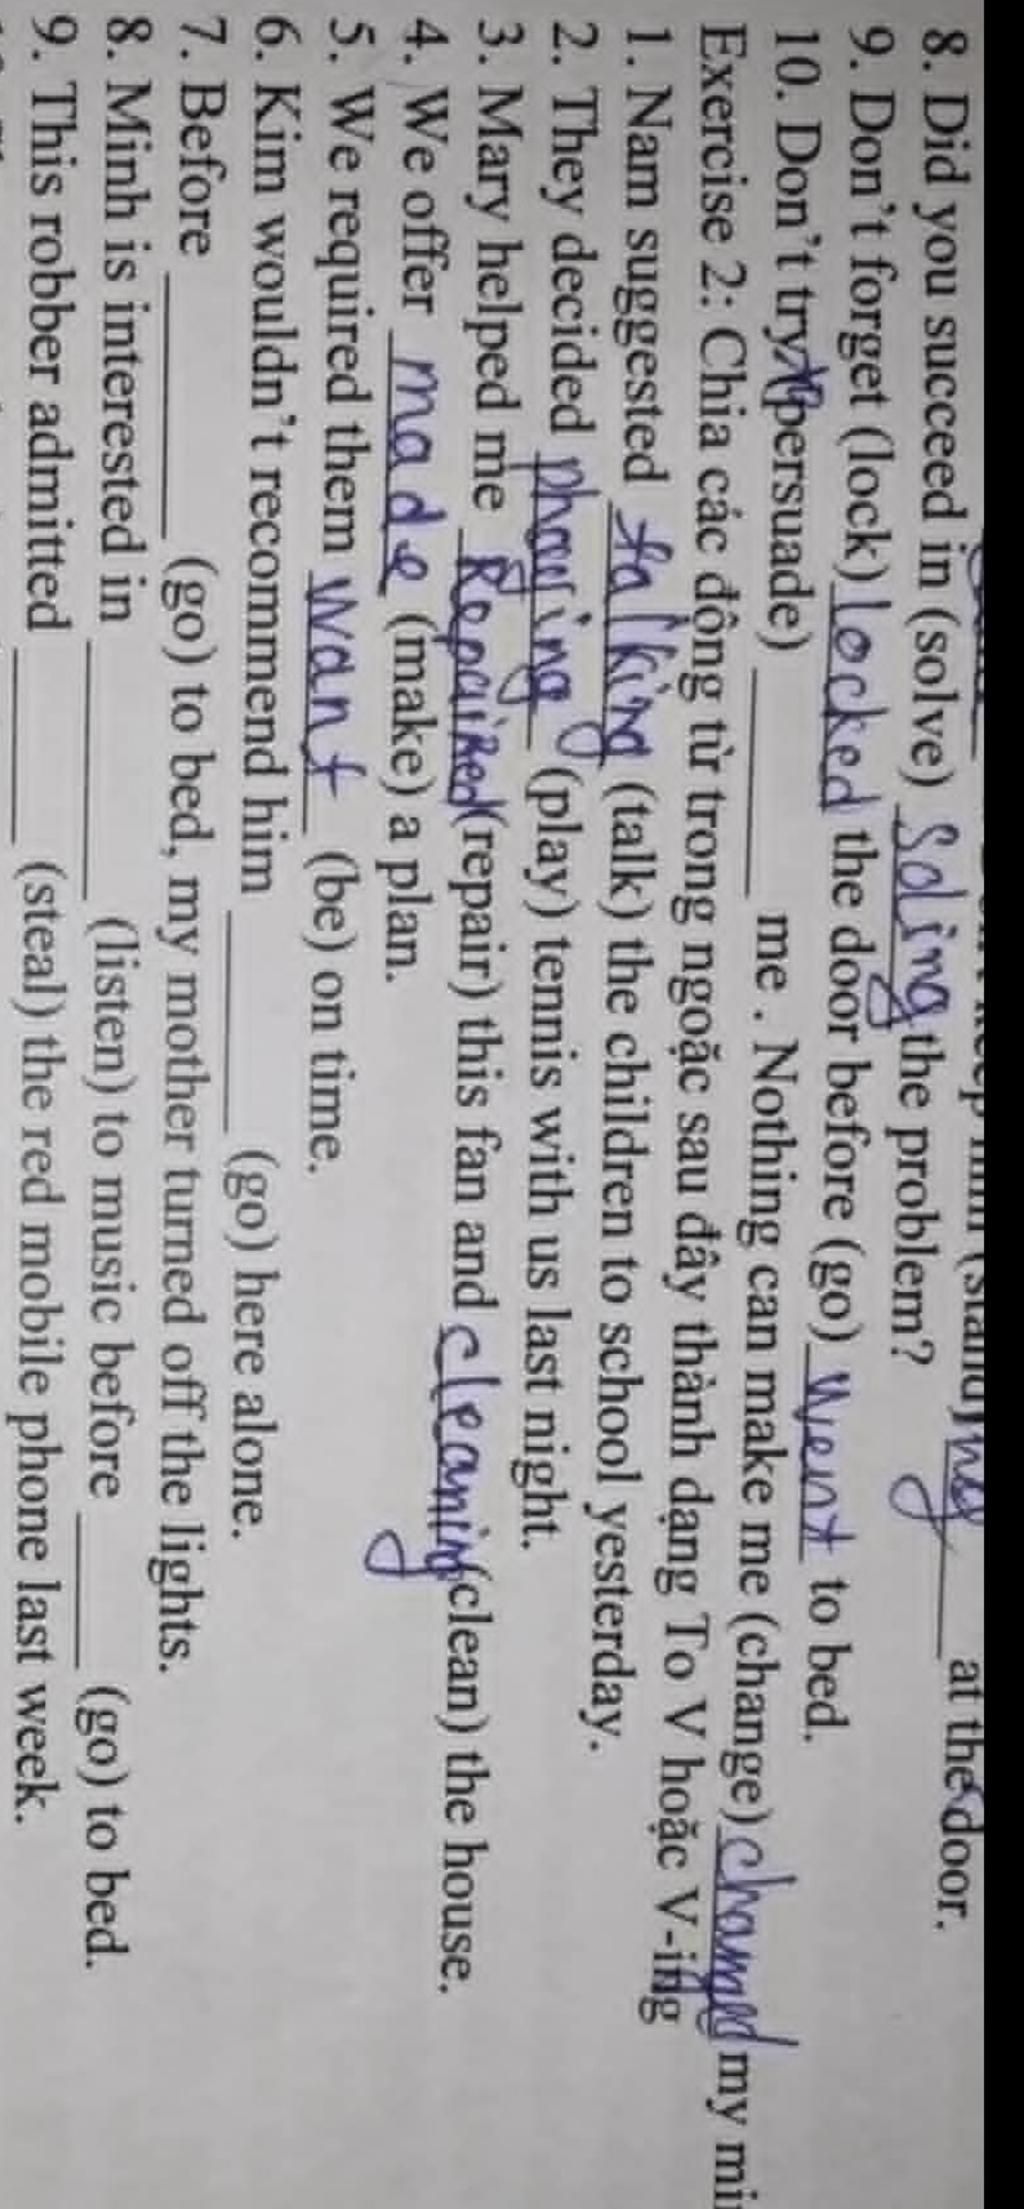 at the door.
8. Did you succeed in (solve) Soling the problem?
9. Don't forget (lock) locked the door before (go) went to bed.
10. Don't try (persuade) ________ me . Nothing can make me (change) changed my
Exercise 2: Chia các động từ trong ngoặc sau đây thành dạng To V hoặc V-ing
1. Nam suggested talking (talk) the children to school yesterday.
2. They decided (play) tennis with us last night.
3. Mary helped me Repaired (repair) this fan and cleaning (clean) the house.
4. We offer made (make) a plan.
5. We required them want (be) on time.
6. Kim wouldn't recommend him ________ (go) here alone.
7. Before ________ (go) to bed, my mother turned off the lights.
8. Minh is interested in ________ (listen) to music before ________ (go) to bed.
9. This robber admitted ________ (steal) the red mobile phone last week.